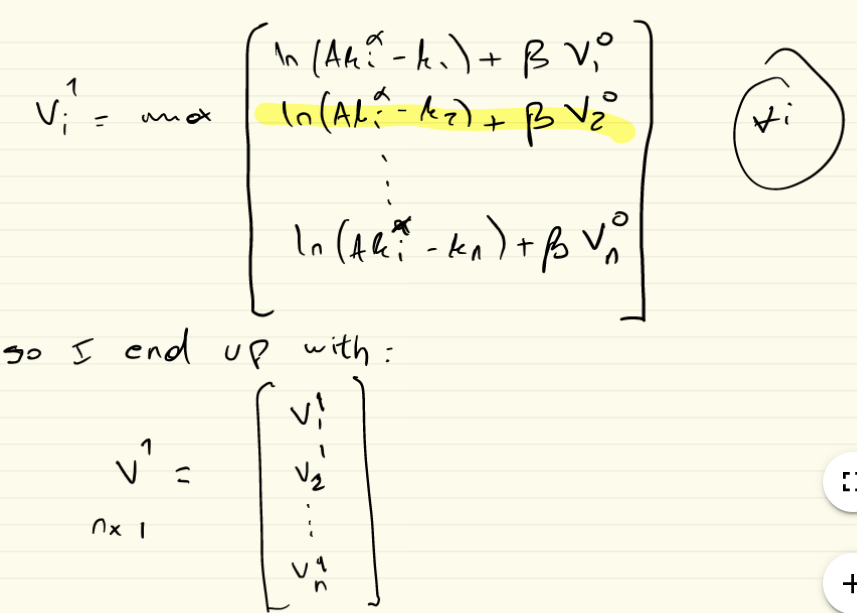 V_i^1 = max [ ln(Ak_i^α - k_1) + β V_1^0
ln(Ak_i^α - k_2) + β V_2^0
⋮
ln(Ak_i^α - k_n) + β V_n^0 ]
∀i
so I end up with:
V^1 = [ V_1^1
V_2^1
⋮
V_n^1 ]
n x 1